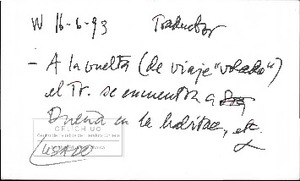 W 16-6-93 Traductor
- A la vuelta (de viaje "volado")
el Tr. se encuentra a
Dueña en la habitac, etc.
(USADO)
CELICH UC